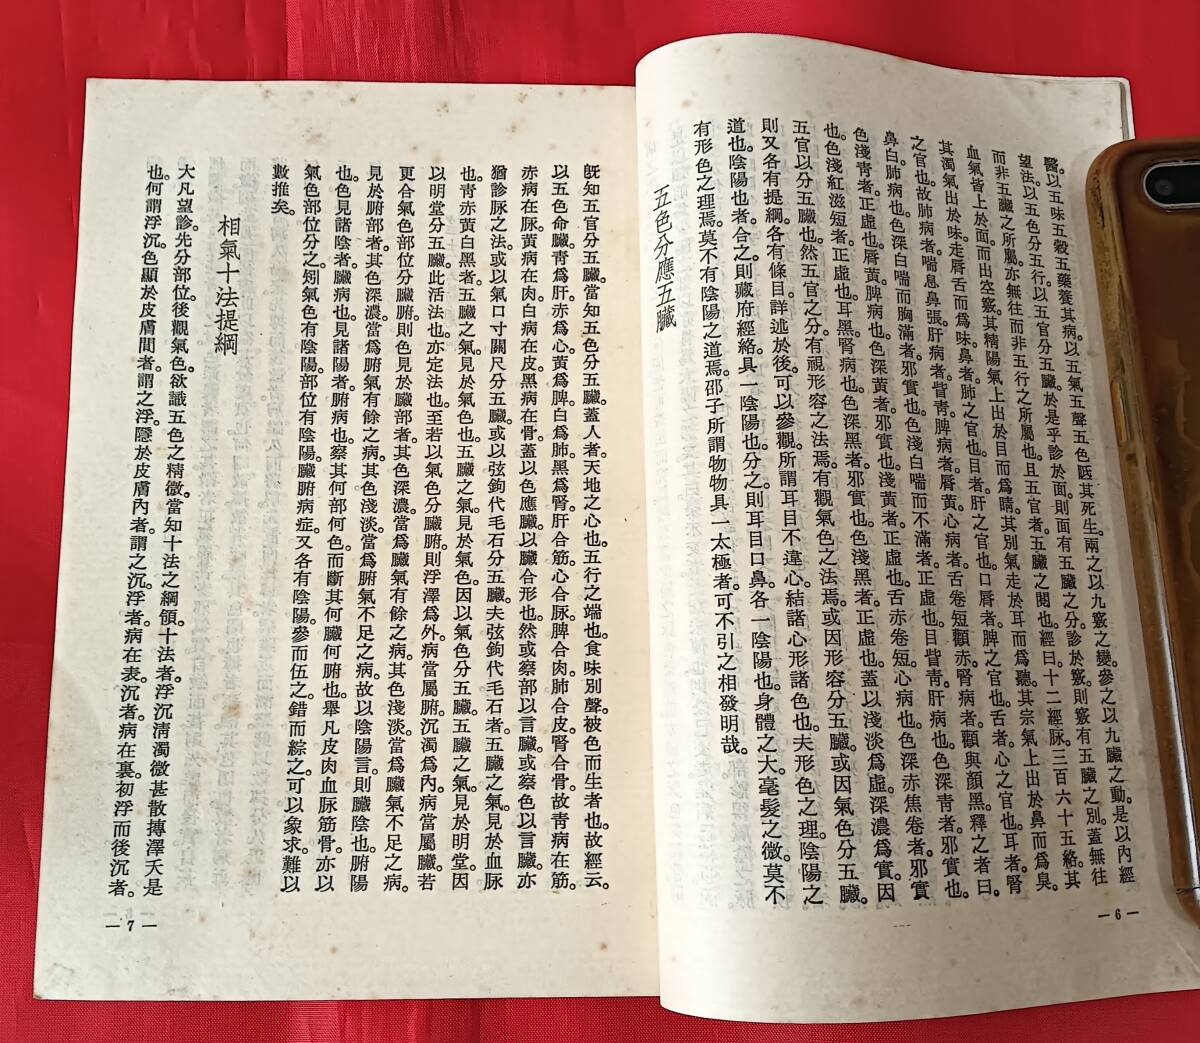 醫。以五味五穀五藥養其病。以五氣五聲五色眂其死生。兩之以九竅之變。參之以九臟之動。是以內經
望法。以五色分五行。以五官分五臟。於是乎診於面。則面有五臟之分。診於竅。則竅有五臟之別。蓋無往
而非五臟之所屬。亦無往而非五行之所屬也。且五官者。五臟之閱也。經曰。十二經脉。三百六十五絡。其
血氣皆上於面。而出空竅。其精陽氣上出於目而爲睛。其別氣走於耳而爲聽。其宗氣上出於鼻而爲臭。
其濁氣出於味。走唇舌而爲味。鼻者。肺之官也。目者。肝之官也。口唇者。脾之官也。舌者。心之官也。耳者。腎
之官也。故肺病者。喘息鼻張。肝病者。眥靑。脾病者。唇黃。心病者。舌卷短顴赤。腎病者。顴與顏黑。釋之者曰。
鼻白。肺病也。色深白喘而胸滿者。邪實也。色淺白喘而不滿者。正虛也。目眥靑。肝病也。色深靑者。邪實也。
色淺靑者。正虛也。唇黃。脾病也。色深黃者。邪實也。色淺黃者。正虛也。舌赤卷短。心病也。色深赤焦卷者。邪實
也。色淺紅滋短者。正虛也。耳黑。腎病也。色深黑者。邪實也。色淺黑者。正虛也。蓋以淺淡爲虛。深濃爲實。因
五官以分五臟也。然五官之分。有視形容之法焉。有觀氣色之法焉。或因形容分五臟。或因氣色分五臟。
則又各有提綱。各有條目。詳述於後。可以參觀。所謂耳目不違心。結諸心形諸色也。夫形色之理。陰陽之
道也。陰陽也者。合之。則藏府經絡具一陰陽也。分之。則耳目口鼻。各一陰陽也。身體之大。毫髮之微。莫不
有形色之理焉。莫不有陰陽之道焉。邵子所謂物物具一太極者。可不引之相發明哉。
五色分應五臟
—6—
旣知五官分五臟。當知五色分五臟。蓋人者。天地之心也。五行之端也。食味別聲。被色而生者也。故經云。
以五色命臟。靑爲肝。赤爲心。黃爲脾。白爲肺。黑爲腎。肝合筋。心合脉。脾合肉。肺合皮。腎合骨。故靑病在筋。
赤病在脉。黃病在肉。白病在皮。黑病在骨。蓋以色應臟。以臟合形也。然或察部以言臟。或察色以言臟。亦
猶診脉之法。或以氣口寸關尺分五臟。或以弦鉤代毛石分五臟。夫弦鉤代毛石者。五臟之氣。見於血脉
也。靑赤黃白黑者。五臟之氣。見於氣色也。五臟之氣。見於氣色。因以氣色分五臟。五臟之氣。見於明堂。因
以明堂分五臟。此活法也。亦定法也。至若以氣色分臟腑。則浮澤爲外。病當屬腑。沉濁爲內。病當屬臟。若
更合氣色部位分臟腑。則色見於臟部者。其色深濃。當爲臟氣有餘之病。其色淺淡。當爲臟氣不足之病。
見於腑部者。其色深濃。當爲腑氣有餘之病。其色淺淡。當爲腑氣不足之病。故以陰陽言。則臟陰也。腑陽
也。色見諸陰者。臟病也。見諸陽者。腑病也。察其何部何色。而斷其何臟何腑也。舉凡皮肉血脉筋骨。亦以
氣色部位分之。矧氣色有陰陽。部位有陰陽。臟腑病症。又各有陰陽。參而伍之。錯而綜之。可以象求。難以
數推矣。
相氣十法提綱
大凡望診。先分部位。後觀氣色。欲識五色之精微。當知十法之綱領。十法者。浮沉淸濁微甚散摶澤夭是
也。何謂浮沉。色顯於皮膚間者。謂之浮。隱於皮膚內者。謂之沉。浮者。病在表。沉者。病在裏。初浮而後沉者。
—7—